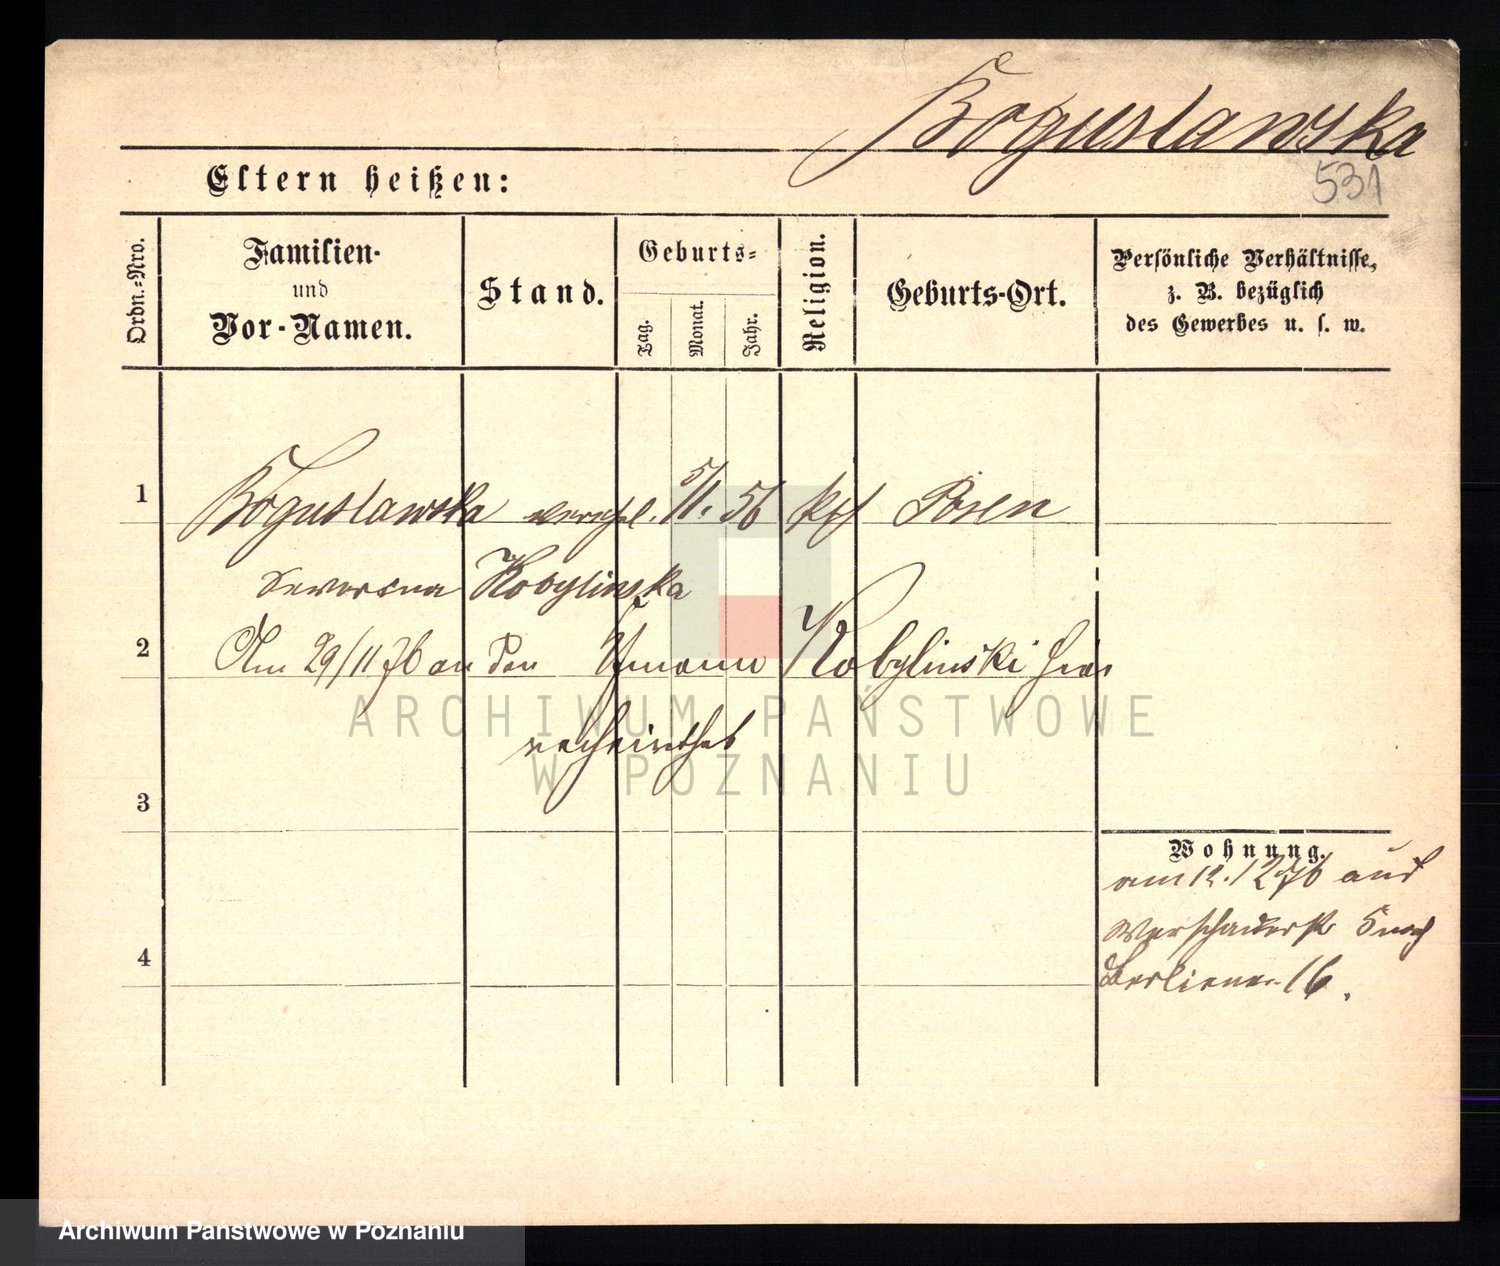 Boguslawska
531
Eltern heißen:
Ordn.-Nro.
Familien-
und
Vor-Namen.
Stand.
Geburts-
Tag.
Monat.
Jahr.
Religion.
Geburts-Ort.
Persönliche Verhältnisse,
z. B. bezüglich
des Gewerbes u. s. w.
1
Boguslawska verehel. 5/11. 56 kth Posen
Kobylinska
2
Am 29/11 76 an den Kobylinski hier
verheirathet
ARCHIWUM PAŃSTWOWE
W POZNANIU
3
Wohnung.
am 12.12 76 aus
5 nach
4
Berliner 16.
Archiwum Państwowe w Poznaniu